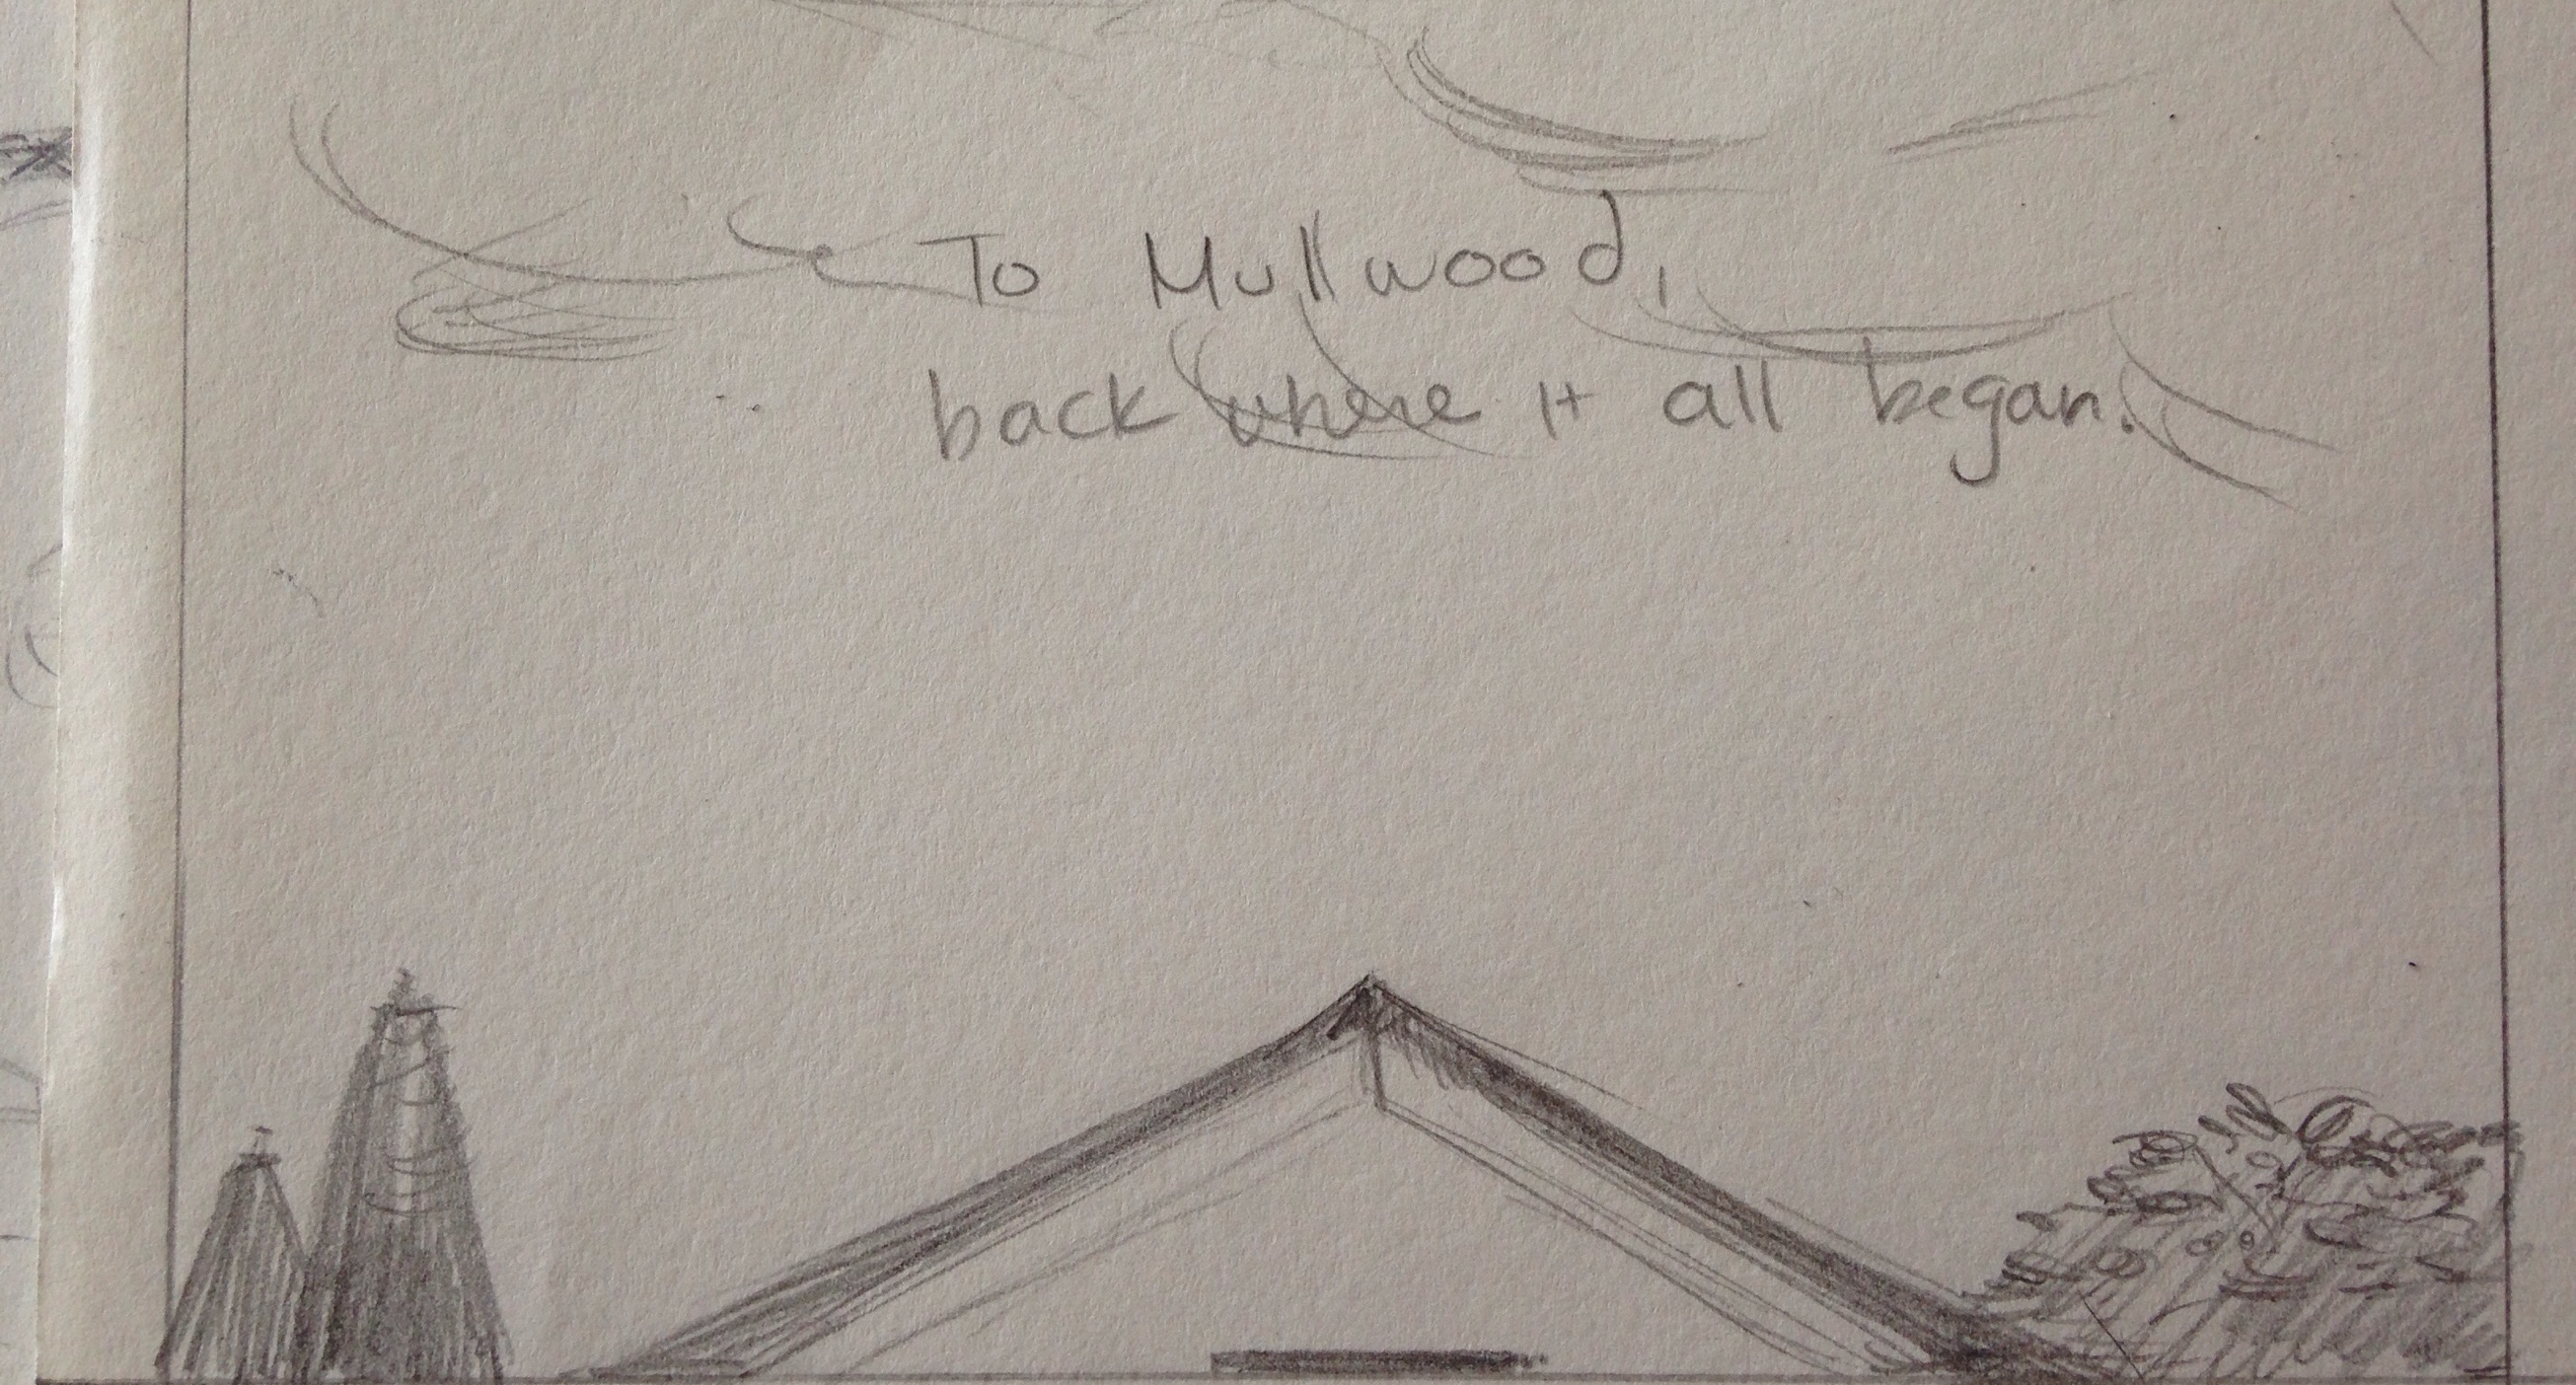 To Mullwood,
back where it all began.